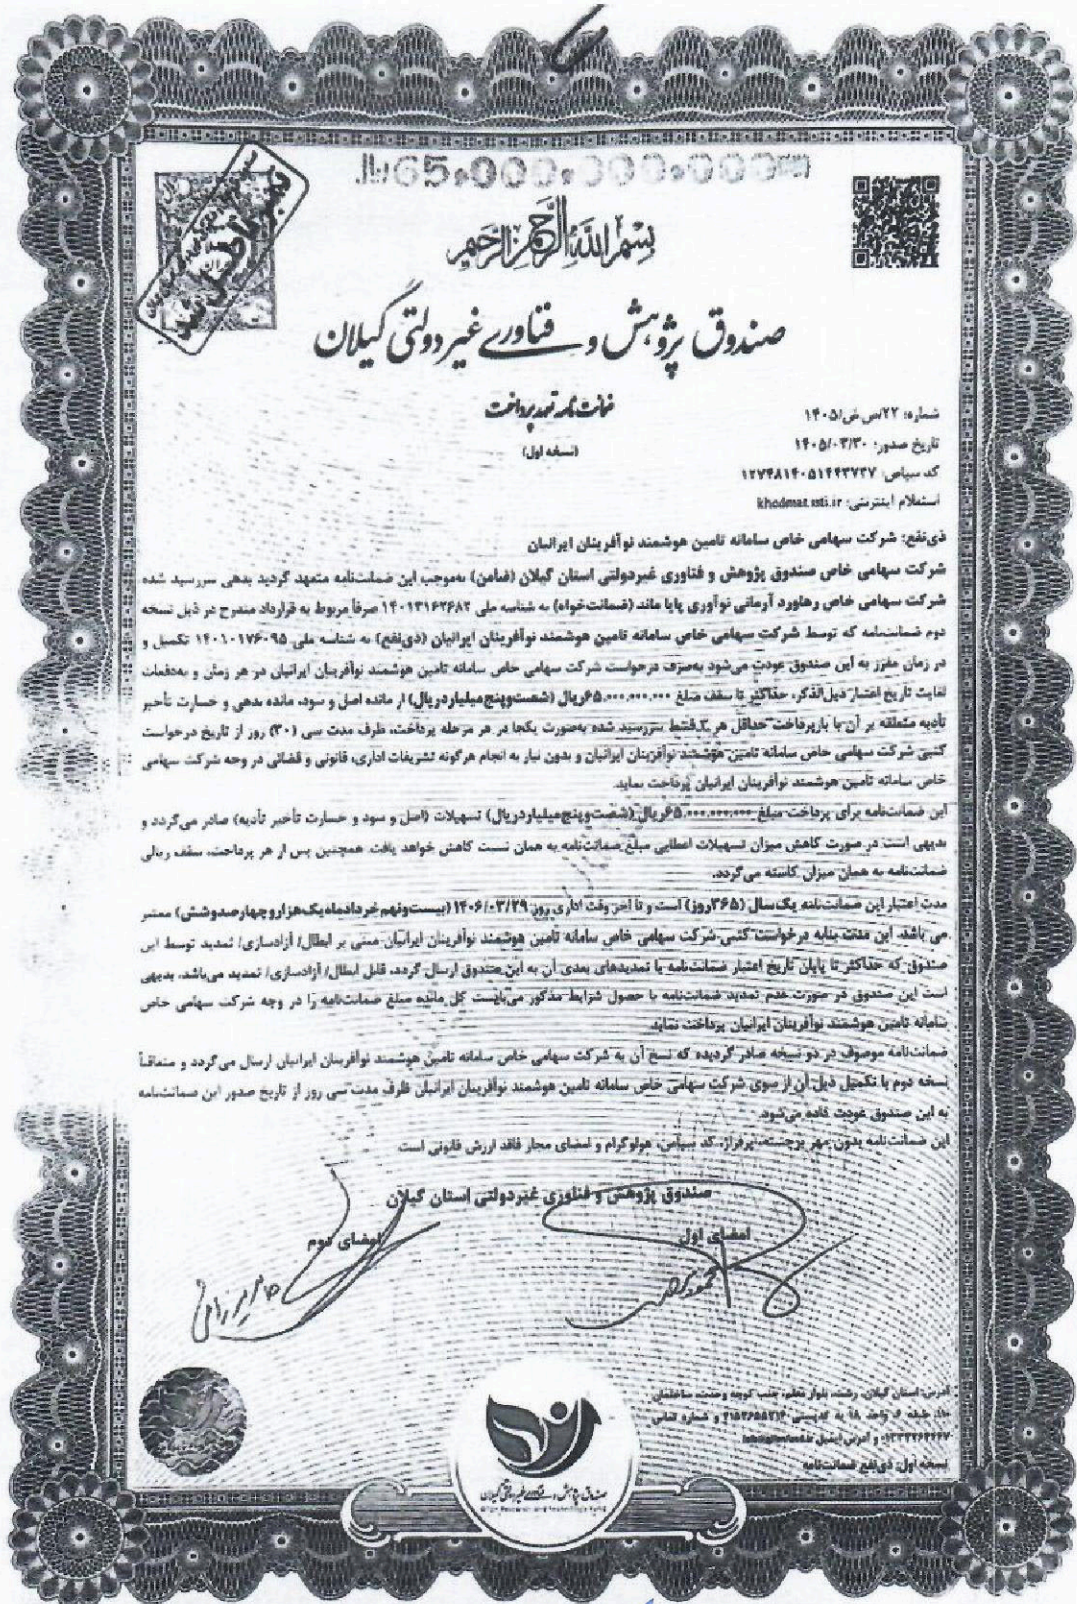 65,000,000,000 ریال
بسم الله الرحمن الرحیم
تمبر باطل شد
صندوق پژوهش و فناوری غیر دولتی گیلان
ضمانت نامه تعهد پرداخت
(نسخه اول)
شماره: ۲۲/ص ض/۱۴۰۵
تاریخ صدور: ۱۴۰۵/۰۳/۳۰
کد سپاص: ۱۲۷۴۸۱۴۰۵۱۴۴۳۷۳۷
استعلام اینترنتی: khadmat.isti.ir
ذی‌نفع: شرکت سهامی خاص سامانه تامین هوشمند نوآفرینان ایرانیان
شرکت سهامی خاص صندوق پژوهش و فناوری غیردولتی استان گیلان (ضامن) به‌موجب این ضمانت‌نامه متعهد گردید بدهی سررسید شده
شرکت سهامی خاص رهاورد آرمانی نوآوری پایا ماند (ضمانت‌خواه) به شناسه ملی ۱۴۰۱۳۱۶۲۶۸۲ صرفاً مربوط به قرارداد مندرج در ذیل نسخه
دوم ضمانت‌نامه که توسط شرکت سهامی خاص سامانه تامین هوشمند نوآفرینان ایرانیان (ذی‌نفع) به شناسه ملی ۱۴۰۱۰۱۷۶۰۹۵ تکمیل و
در زمان مقرر به این صندوق عودت می‌شود به‌صرف درخواست شرکت سهامی خاص سامانه تامین هوشمند نوآفرینان ایرانیان در هر زمان و به‌دفعات
لغایت تاریخ اعتبار ذیل‌الذکر، حداکثر تا سقف مبلغ ۶۵.۰۰۰.۰۰۰.۰۰۰ریال (شصت‌وپنج‌میلیاردریال) از مانده اصل و سود، مانده بدهی و خسارت تأخیر
تأدیه متعلقه بر آن با بازپرداخت حداقل هر قسط سررسید شده به‌صورت یکجا در هر مرحله پرداخت، ظرف مدت سی (۳۰) روز از تاریخ درخواست
کتبی شرکت سهامی خاص سامانه تامین هوشمند نوآفرینان ایرانیان و بدون نیاز به انجام هرگونه تشریفات اداری، قانونی و قضائی در وجه شرکت سهامی
خاص سامانه تامین هوشمند نوآفرینان ایرانیان پرداخت نماید.
این ضمانت‌نامه برای پرداخت مبلغ ۶۵.۰۰۰.۰۰۰.۰۰۰ریال (شصت‌وپنج‌میلیاردریال) تسهیلات (اصل و سود و خسارت تأخیر تأدیه) صادر می‌گردد و
بدیهی است در صورت کاهش میزان تسهیلات اعطایی مبلغ ضمانت‌نامه به همان نسبت کاهش خواهد یافت. همچنین پس از هر پرداخت، سقف ریالی
ضمانت‌نامه به همان میزان کاسته می‌گردد.
مدت اعتبار این ضمانت‌نامه یک‌سال (۳۶۵روز) است و تا آخر وقت اداری روز ۱۴۰۶/۰۳/۲۹ (بیست‌ونهم‌خردادماه‌یک‌هزاروچهارصدوشش) معتبر
می باشد. این مدت بنابه درخواست کتبی شرکت سهامی خاص سامانه تامین هوشمند نوآفرینان ایرانیان مبنی بر ابطال/ آزادسازی/ تمدید توسط این
صندوق که حداکثر تا پایان تاریخ اعتبار ضمانت‌نامه یا تمدیدهای بعدی آن به این صندوق ارسال گردد، قابل ابطال/ آزادسازی/ تمدید می‌باشد. بدیهی
است این صندوق در صورت عدم تمدید ضمانت‌نامه با حصول شرایط مذکور می‌بایست کل مانده مبلغ ضمانت‌نامه را در وجه شرکت سهامی خاص
سامانه تامین هوشمند نوآفرینان ایرانیان پرداخت نماید.
ضمانت‌نامه موصوف در دو نسخه صادر گردیده که نسخ آن به شرکت سهامی خاص سامانه تامین هوشمند نوآفرینان ایرانیان ارسال می‌گردد و متعاقباً
نسخه دوم با تکمیل ذیل آن از سوی شرکت سهامی خاص سامانه تامین هوشمند نوآفرینان ایرانیان ظرف مدت سی روز از تاریخ صدور این ضمانت‌نامه
به این صندوق عودت داده می‌شود.
این ضمانت‌نامه بدون مهر برجسته، پرفراژ، کد سپاص، هولوگرام و امضای مجاز فاقد ارزش قانونی است.
صندوق پژوهش و فناوری غیردولتی استان گیلان
امضای اول
امضای دوم
آدرس: استان گیلان، رشت، بلوار معلم، جنب کوچه وحدت، ساختمان
نسخه اول: ذی‌نفع ضمانت‌نامه
صندوق پژوهش و فناوری غیردولتی گیلان